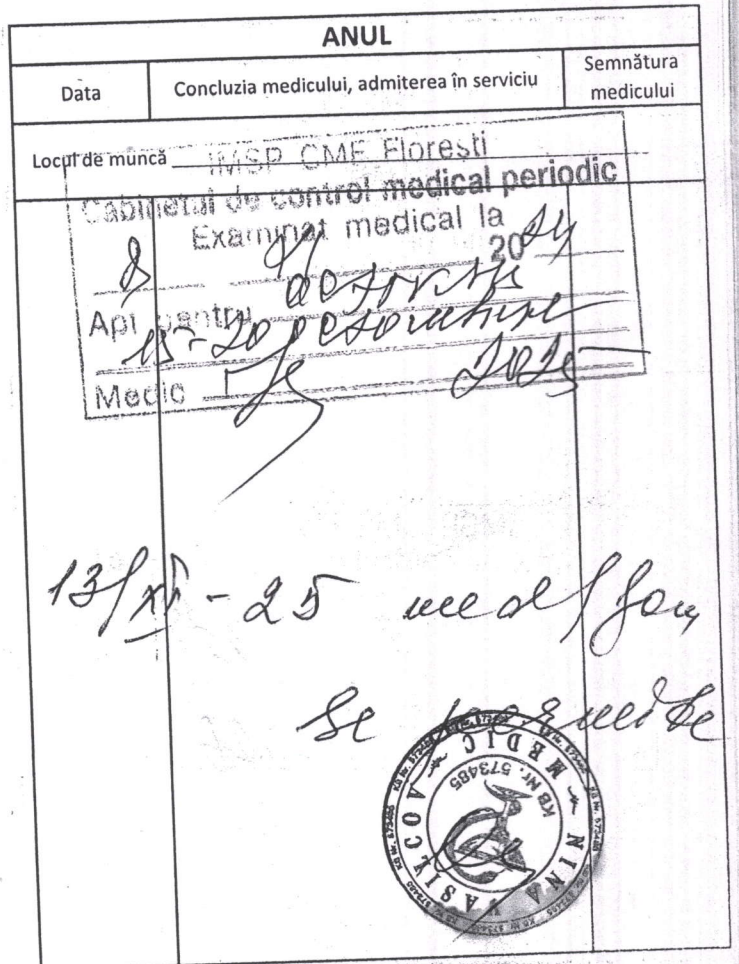 ANUL
Data Concluzia medicului, admiterea în serviciu Semnătura medicului
Locul de muncă
IMSP CME Florești
Cabinetul de control medical periodic
Examinat medical la
2024
Apt pentru
Medic
2025
13/XI - 25 med/fam
Se permite
NINA VASILCOVA MEDIC
KB Nr. 573485